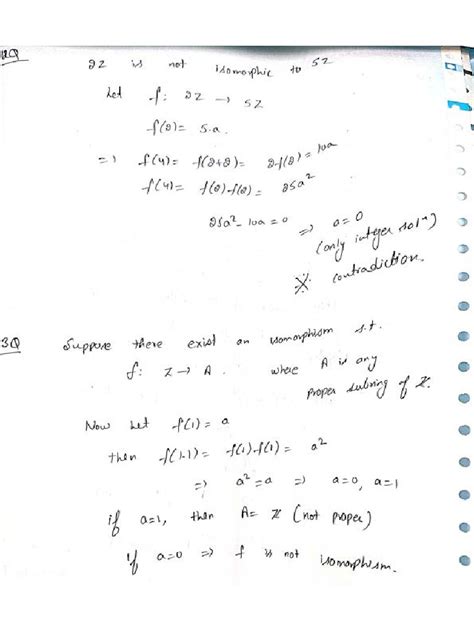 2Z is not isomorphic to 5Z
Let f: 2Z → 5Z
f(2) = 5·a.
=> f(4) = f(2+2) = 2f(2) = 10a
f(4) = f(2)·f(2) = 25a²
25a² - 10a = 0 => a = 0
(only integer solⁿ)
※ contradiction.
3Q Suppose there exist an isomorphism s.t.
f: Z → A. where A is any
proper subring of Z.
Now let f(1) = a
then f(1·1) = f(1)·f(1) = a²
=> a² = a => a=0, a=1
if a=1, then A = Z (not proper)
if a=0 => f is not isomorphism.